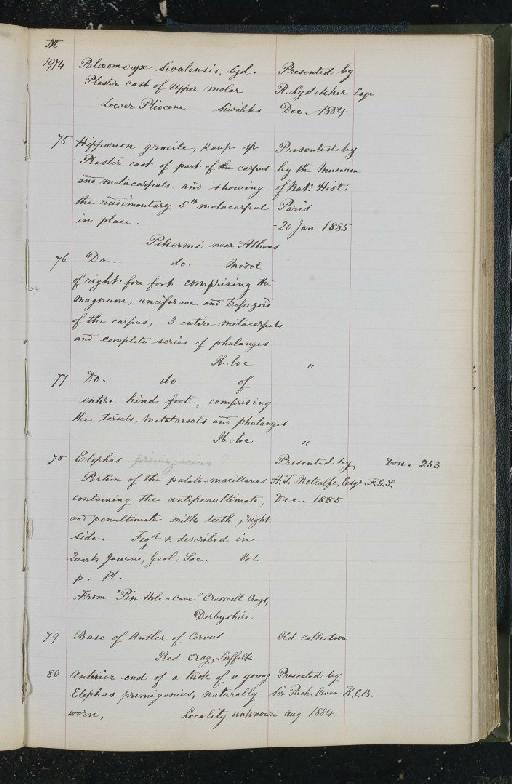 M
1974 Rhizomys sivalensis, Lyd. Presented by
Plaster cast of upper molar R. Lydekker Esqr
Lower Pliocene Siwaliks Dec. 1884
75 Hipparion gracile, Kaup sp. Presented by
Plaster cast of part of the carpus by the Museum
and metacarpals and showing of Nat. Hist.
the rudimentary 5th metacarpal Paris
in place. 20 Jan 1885
Pikermi near Athens
76 Do. do. Model
of right fore foot comprising the
magnum, unciforme and trapezoid
of the carpus, 3 entire metacarpals
and complete series of phalanges
Ib. loc "
77 Do. do of
entire hind foot, comprising
the tarsals, metatarsals and phalanges
Ib. loc "
78 Elephas primigenius Presented by
Portion of the palato-maxillaries A. T. Metcalfe, Esqr F.G.S.
containing the antepenultimate, Dec. 1885
and penultimate milk teeth, right
side. Figd & described in
Quart. Journ. Geol. Soc. Vol
p. Pl.
From "Pin Hole Cave" Creswell Crags,
Derbyshire.
79 Base of Antler of Cervus Old collection
Red Crag, Suffolk
80 Anterior end of a tusk of a young Presented by
Elephas primigenius, naturally Sir Rich. Owen K.C.B.
worn, Locality unknown Aug 1884